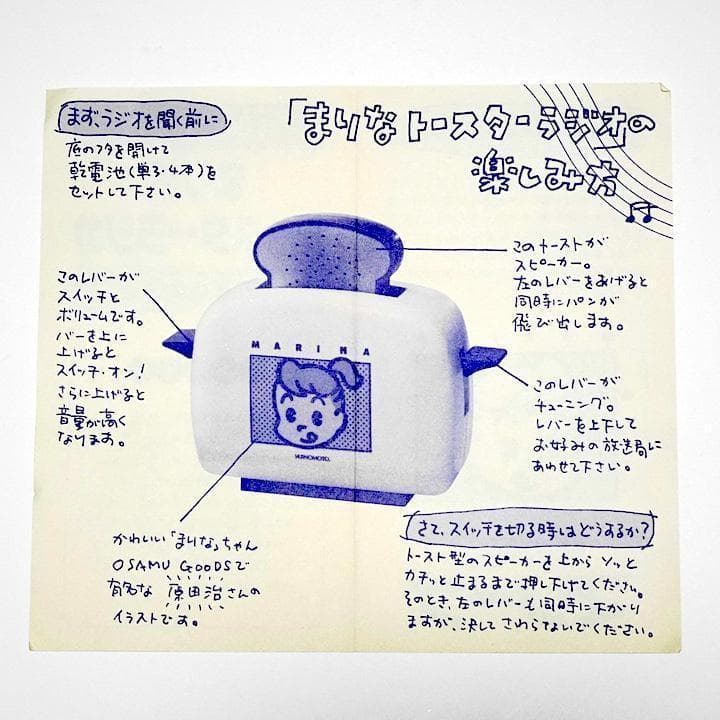 「まりなトースターラジオ」の
楽しみ方
まず、ラジオを聞く前に
底のフタを開けて
乾電池(単3・4本)を
セットして下さい。
このトーストが
スピーカー。
左のレバーをあげると
同時にパンが
飛び出します。
このレバーが
スイッチと
ボリュームです。
バーを上に
上げると
スイッチ・オン!
さらに上げると
音量が高く
なります。
MARINA
AJINOMOTO.
このレバーが
チューニング。
レバーを上下して
お好みの放送局に
あわせて下さい。
かわいい「まりな」ちゃん
OSAMU GOODSで
有名な 原田治さんの
イラストです。
さて、スイッチを切る時はどうするか?
トースト型のスピーカーを上から ソッと
カチッと止まるまで押し下げてください。
そのとき、左のレバーも同時に下がり
ますが、決して さわらないでください。